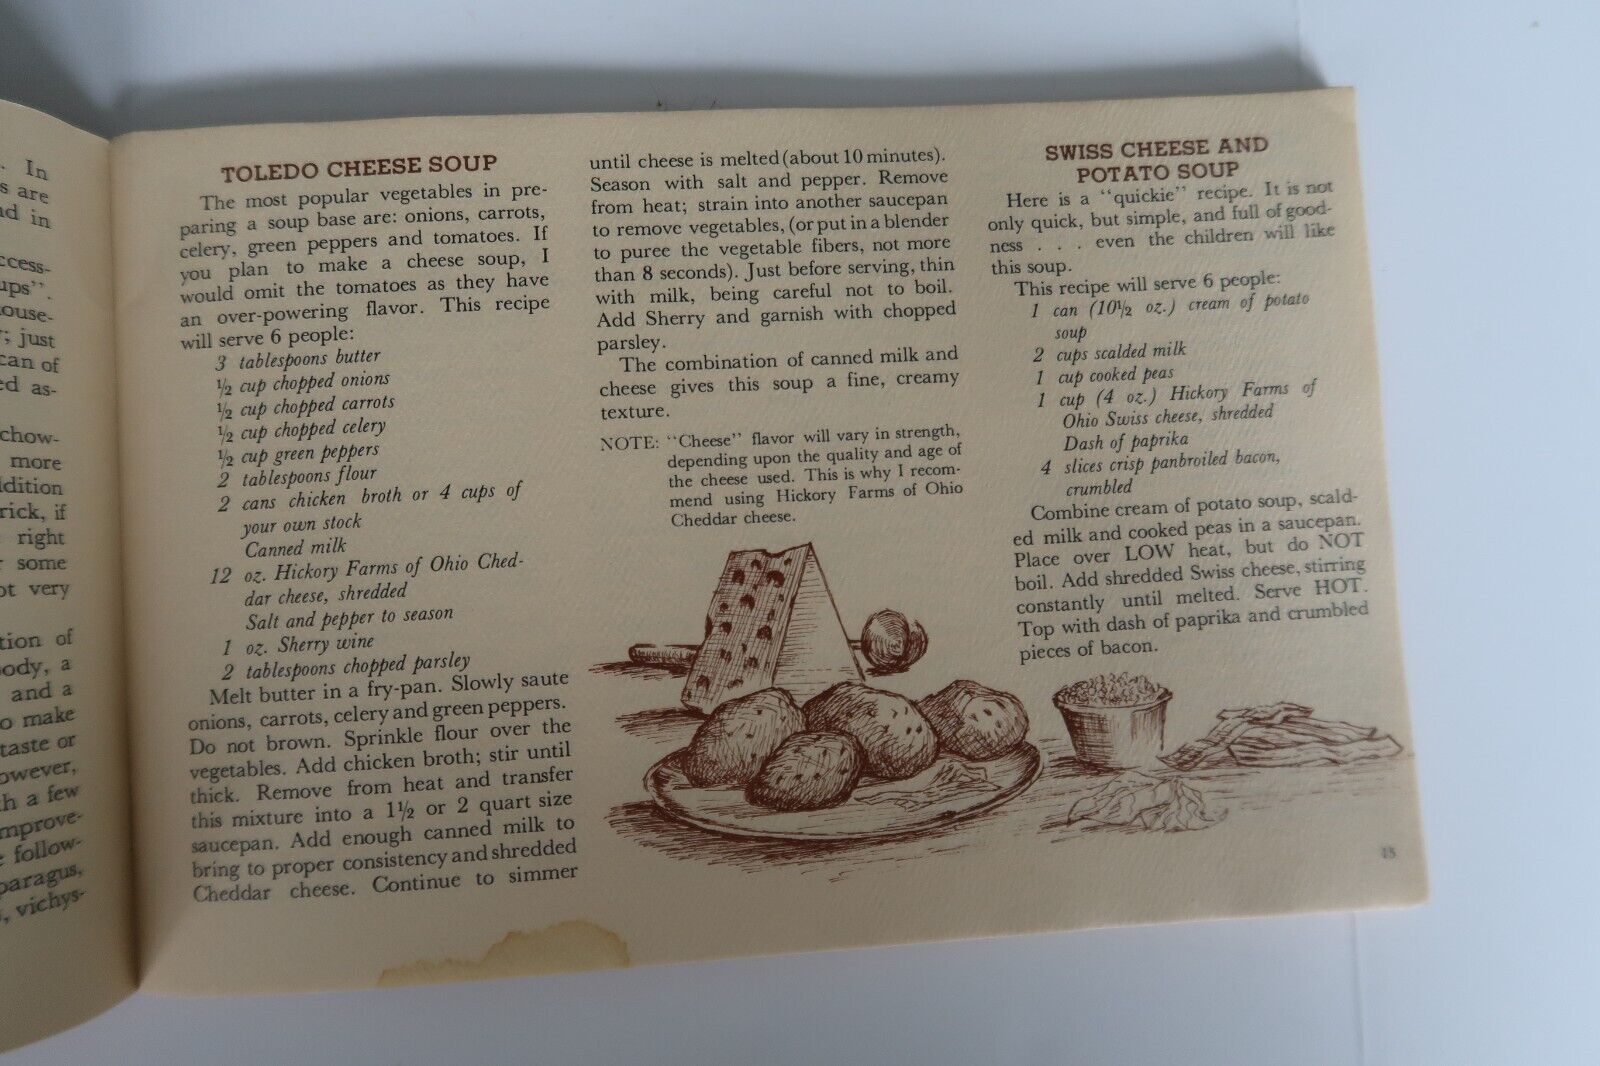 . In
s are
nd in
ccess-
ups".
ouse-
; just
can of
ed as-
chow-
more
ddition
rick, if
right
r some
ot very
tion of
body, a
and a
o make
taste or
owever,
h a few
mprove-
e follow-
paragus,
, vichys-
TOLEDO CHEESE SOUP
The most popular vegetables in pre-
paring a soup base are: onions, carrots,
celery, green peppers and tomatoes. If
you plan to make a cheese soup, I
would omit the tomatoes as they have
an over-powering flavor. This recipe
will serve 6 people:
3 tablespoons butter
½ cup chopped onions
½ cup chopped carrots
½ cup chopped celery
½ cup green peppers
2 tablespoons flour
2 cans chicken broth or 4 cups of
your own stock
Canned milk
12 oz. Hickory Farms of Ohio Ched-
dar cheese, shredded
Salt and pepper to season
1 oz. Sherry wine
2 tablespoons chopped parsley
Melt butter in a fry-pan. Slowly saute
onions, carrots, celery and green peppers.
Do not brown. Sprinkle flour over the
vegetables. Add chicken broth; stir until
thick. Remove from heat and transfer
this mixture into a 1½ or 2 quart size
saucepan. Add enough canned milk to
bring to proper consistency and shredded
Cheddar cheese. Continue to simmer
until cheese is melted (about 10 minutes).
Season with salt and pepper. Remove
from heat; strain into another saucepan
to remove vegetables, (or put in a blender
to puree the vegetable fibers, not more
than 8 seconds). Just before serving, thin
with milk, being careful not to boil.
Add Sherry and garnish with chopped
parsley.
The combination of canned milk and
cheese gives this soup a fine, creamy
texture.
NOTE: "Cheese" flavor will vary in strength,
depending upon the quality and age of
the cheese used. This is why I recom-
mend using Hickory Farms of Ohio
Cheddar cheese.
SWISS CHEESE AND
POTATO SOUP
Here is a "quickie" recipe. It is not
only quick, but simple, and full of good-
ness . . . even the children will like
this soup.
This recipe will serve 6 people:
1 can (10½ oz.) cream of potato
soup
2 cups scalded milk
1 cup cooked peas
1 cup (4 oz.) Hickory Farms of
Ohio Swiss cheese, shredded
Dash of paprika
4 slices crisp panbroiled bacon,
crumbled
Combine cream of potato soup, scald-
ed milk and cooked peas in a saucepan.
Place over LOW heat, but do NOT
boil. Add shredded Swiss cheese, stirring
constantly until melted. Serve HOT.
Top with dash of paprika and crumbled
pieces of bacon.